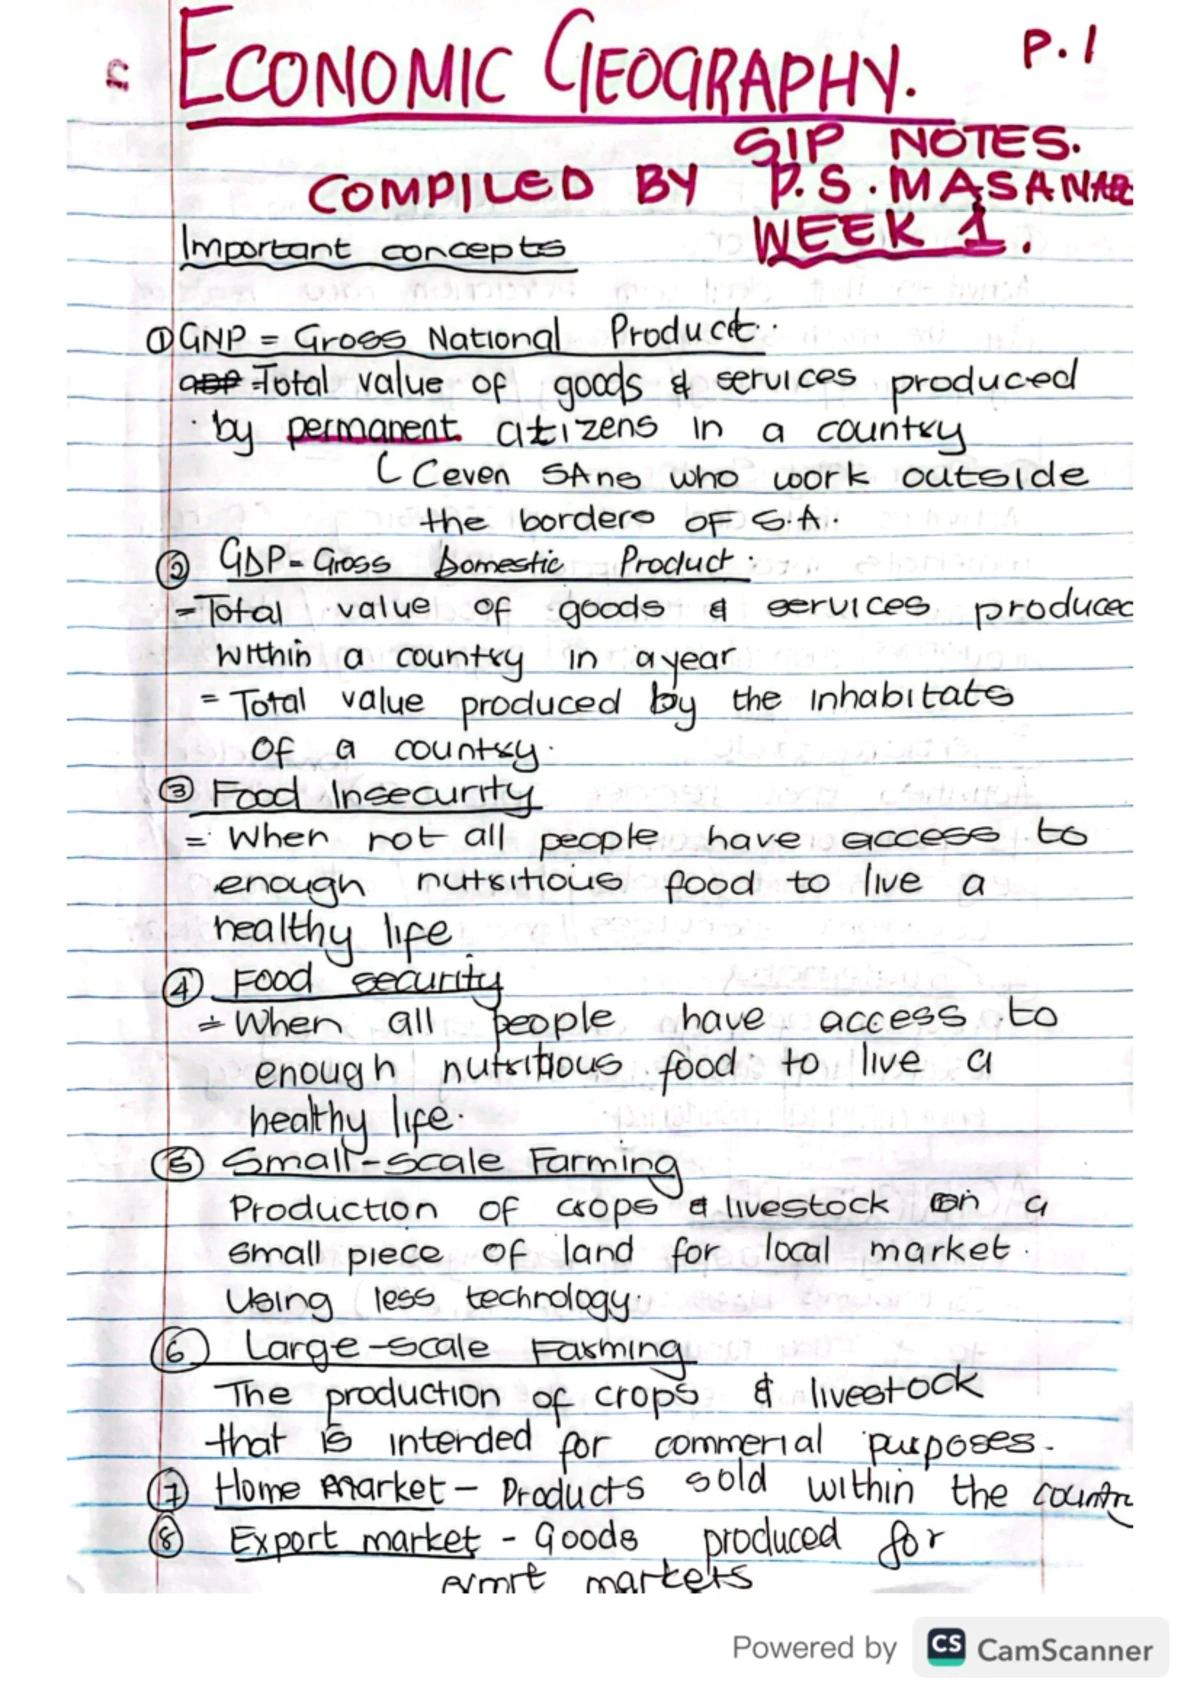 ECONOMIC GEOGRAPHY. P.1
SIP NOTES.
COMPILED BY P.S. MASANAB
WEEK 1.
Important concepts
① GNP = Gross National Product.
Total value of goods & services produced
by permanent citizens in a country
(even SAns who work outside
the borders of S.A.
② GDP - Gross Domestic Product.
= Total value of goods & services produced
within a country in a year
= Total value produced by the inhabitats
of a country.
③ Food Insecurity
= When not all people have access to
enough nutritious food to live a
healthy life
④ Food security
= When all people have access to
enough nutritious food to live a
healthy life.
⑤ Small-scale Farming
Production of crops & livestock on a
small piece of land for local market.
Using less technology.
⑥ Large-scale Farming
The production of crops & livestock
that is intended for commerial purposes.
⑦ Home market - Products sold within the countr
⑧ Export market - Goods produced for
markets
Powered by CS CamScanner